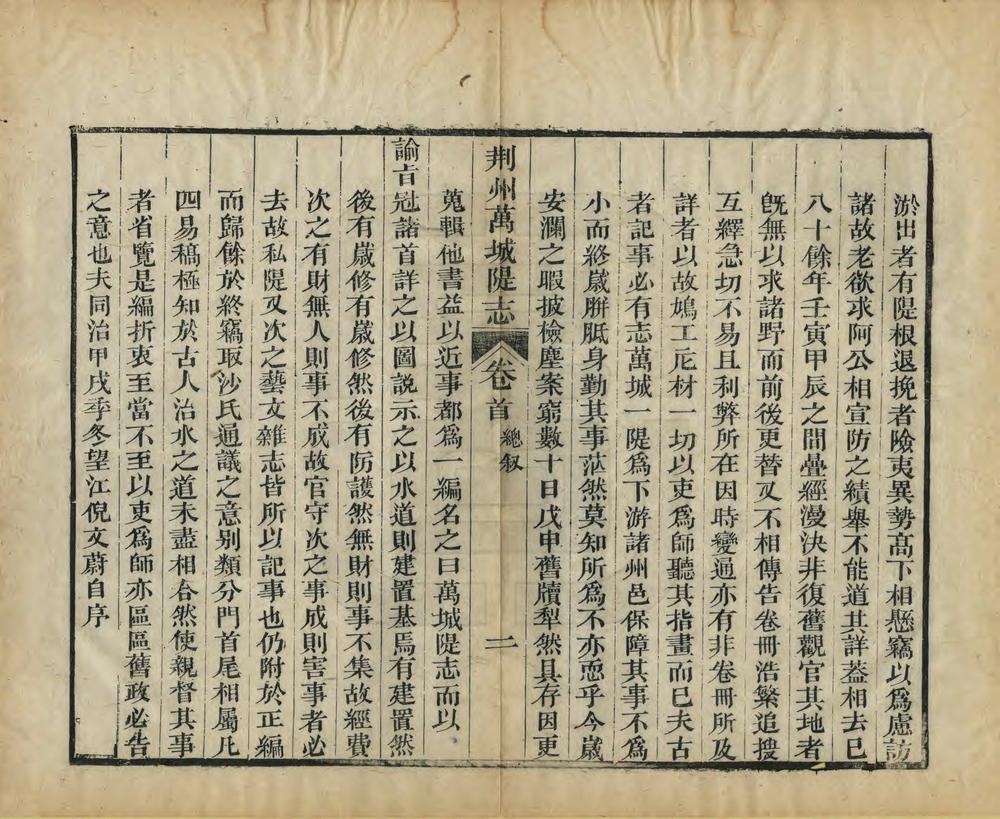 淤出者有隄根退挽者險夷異勢高下相懸竊以爲慮訪
諸故老欲求阿公相宣防之績舉不能道其詳蓋相去已
八十餘年壬寅甲辰之間疊經漫決非復舊觀官其地者
旣無以求諸野而前後更替又不相傳告卷冊浩繁追搜
互繹急切不易且利弊所在因時變通亦有非卷冊所及
詳者以故鳩工庀材一切以吏爲師聽其指畫而已夫古
者記事必有志萬城一隄爲下游諸州邑保障其事不爲
小而終歲胼胝身勤其事茫然莫知所爲不亦恧乎今歲
安瀾之暇披檢塵案窮數十日戊申舊牘犁然具存因更
荆州萬城隄志 卷首 總叙 二
蒐輯他書益以近事都爲一編名之曰萬城隄志而以
諭旨冠諸首詳之以圖說示之以水道則建置基焉有建置然
後有歲修有歲修然後有防護然無財則事不集故經費
次之有財無人則事不成故官守次之事成則害事者必
去故私隄又次之藝文雜志皆所以記事也仍附於正編
而歸餘於終竊取沙氏通議之意別類分門首尾相屬凡
四易稿極知於古人治水之道未盡相合然使親督其事
者省覽是編折衷至當不至以吏爲師亦區區舊政必告
之意也夫同治甲戌季冬望江倪文蔚自序